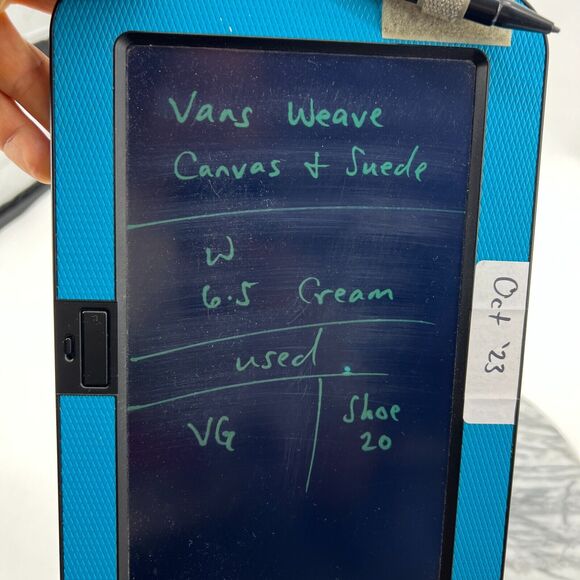 Vans Weave
Canvas + Suede
W
6.5 Cream
used.
VG
Shoe
20
Oct '23